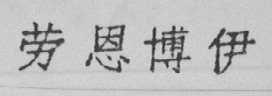 劳恩博伊